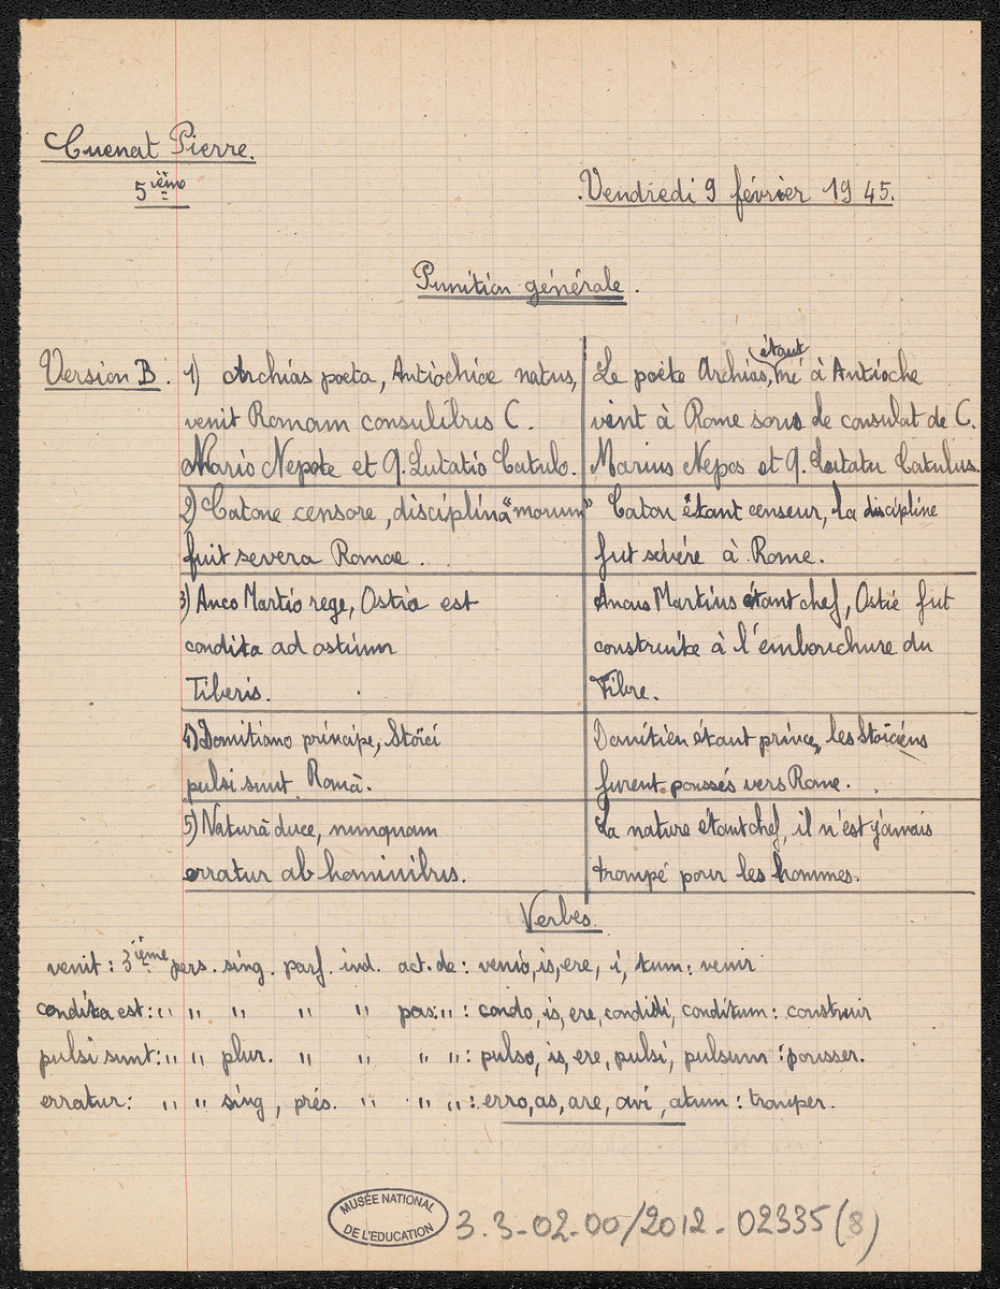 Cuenat Pierre.
5ième
Vendredi 9 février 1945.
Punition générale.
Version B. 1) Archias poeta, Antiochiae natus,
venit Romam consulibus C.
Mario Nepote et Q. Lutatio Catulo.
Le poète Archias, étant né à Antioche
vint à Rome sous le consulat de C.
Marius Nepos et Q. Lutatu Catulus.
2) Catone censore, disciplina "morum"
fuit severa Romae.
Caton étant censeur, la discipline
fut sévère à Rome.
3) Anco Martio rege, Ostia est
condita ad ostium
Tiberis.
Ancus Martius étant chef, Ostie fut
construite à l'embouchure du
Tibre.
4) Domitiano principe, Stoïci
pulsi sunt Romā.
Domitien étant prince, les Stoïciens
furent poussés vers Rome.
5) Naturā duce, nunquam
erratur ab hominibus.
La nature étant chef, il n'est jamais
trompé pour les hommes.
Verbes
venit : 3ième pers. sing. parf. ind. act. de : venio, is, ere, i, tum : venir
condita est : " " " " " pas. " : condo, is, ere, condidi, conditum : construir
pulsi sunt : " " plur. " " " " : pulso, is, ere, pulsi, pulsum : pousser.
erratur : " " sing, prés. " " " : erro, as, are, avi, atum : tromper.
MUSÉE NATIONAL
DE L'EDUCATION
3.3-02.00/2012-02335(8)